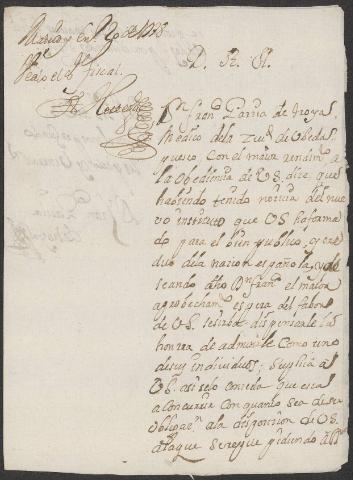 Madrid y En.º de 1738
Vealo el Sr fiscal.
D. R. A.
Dn franco Garcia de oyos
Medico de la Ziud. de Ubeda
puesto, con el maior rendimto
a la obediencia de VS. dize, que
habiendo tenido noticia del nue
vo instituto que VS ha forma
do para el bien publico, y cre
dito de la nacion española, y de
seando dho Dn franco el maior
aprobechamto espera del fabor
de VS. se sirba dispensarle la
honrra de admitirle como uno
de sus individuos; suplica a
VS. asi selo conceda que esta
a concurrir con quanto sea de su
obligaon a la disposicion de VS.
pidiendo a